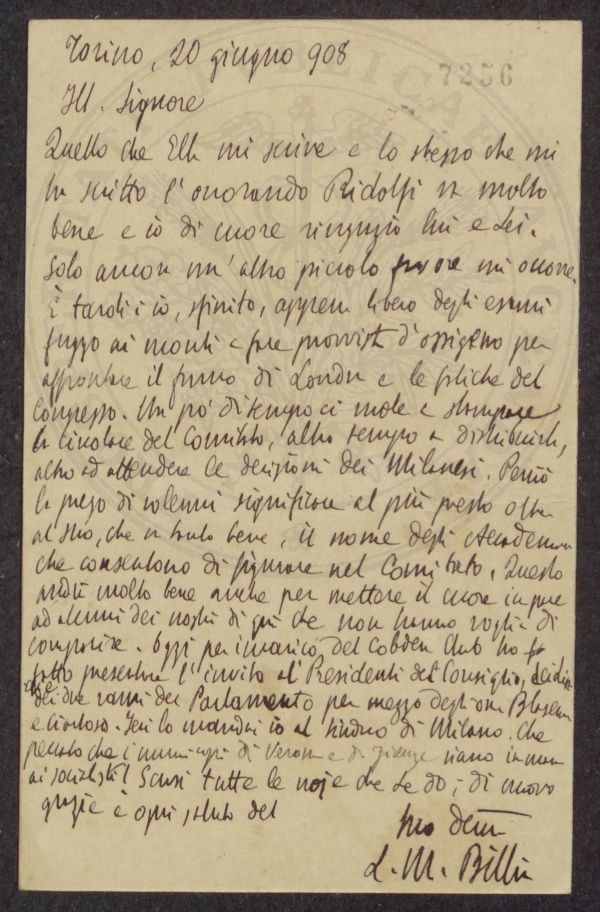 Torino, 20 giugno 908
7256
Ill. Signore
Quello che Ella mi scrive e lo stesso che mi
ha scritto l'onorando Ridolfi va molto
bene e io di cuore ringrazio Lui e Lei.
Solo ancora un'altro piccolo favore mi occorre.
È tardi e io, sfinito, appena libero degli esami
fuggo ai monti a fare provvista d'ossigeno per
affrontare il fumo di Londra e le fatiche del
Congresso. Un po' di tempo ci vuole a stampare
la circolare del Comitato, altro tempo a distribuirla,
altro ad attendere le decisioni dei Milanesi. Perciò
la prego di volermi significare al più presto oltre
al suo, che va tanto bene, il nome degli Accademici
che consentono di figurare nel Comitato. Questo
andrà molto bene anche per mettere il cuore in pace
ad alcuni dei nostri di qui che non hanno voglia di
comparire. Oggi per incarico del Cobden Club ho
fatto presentare l'invito al Presidenti del Consiglio,
dei due rami del Parlamento per mezzo degli on. Blaserna
e . Ieri lo mandai io al Sindaco di Milano. Che
peccato che i municipi di Verona e di Firenze siano in mano
ai socialisti! Scusi tutte le noje che Le do; di nuovo
grazie e ogni saluto del
Suo
L. M. Billia